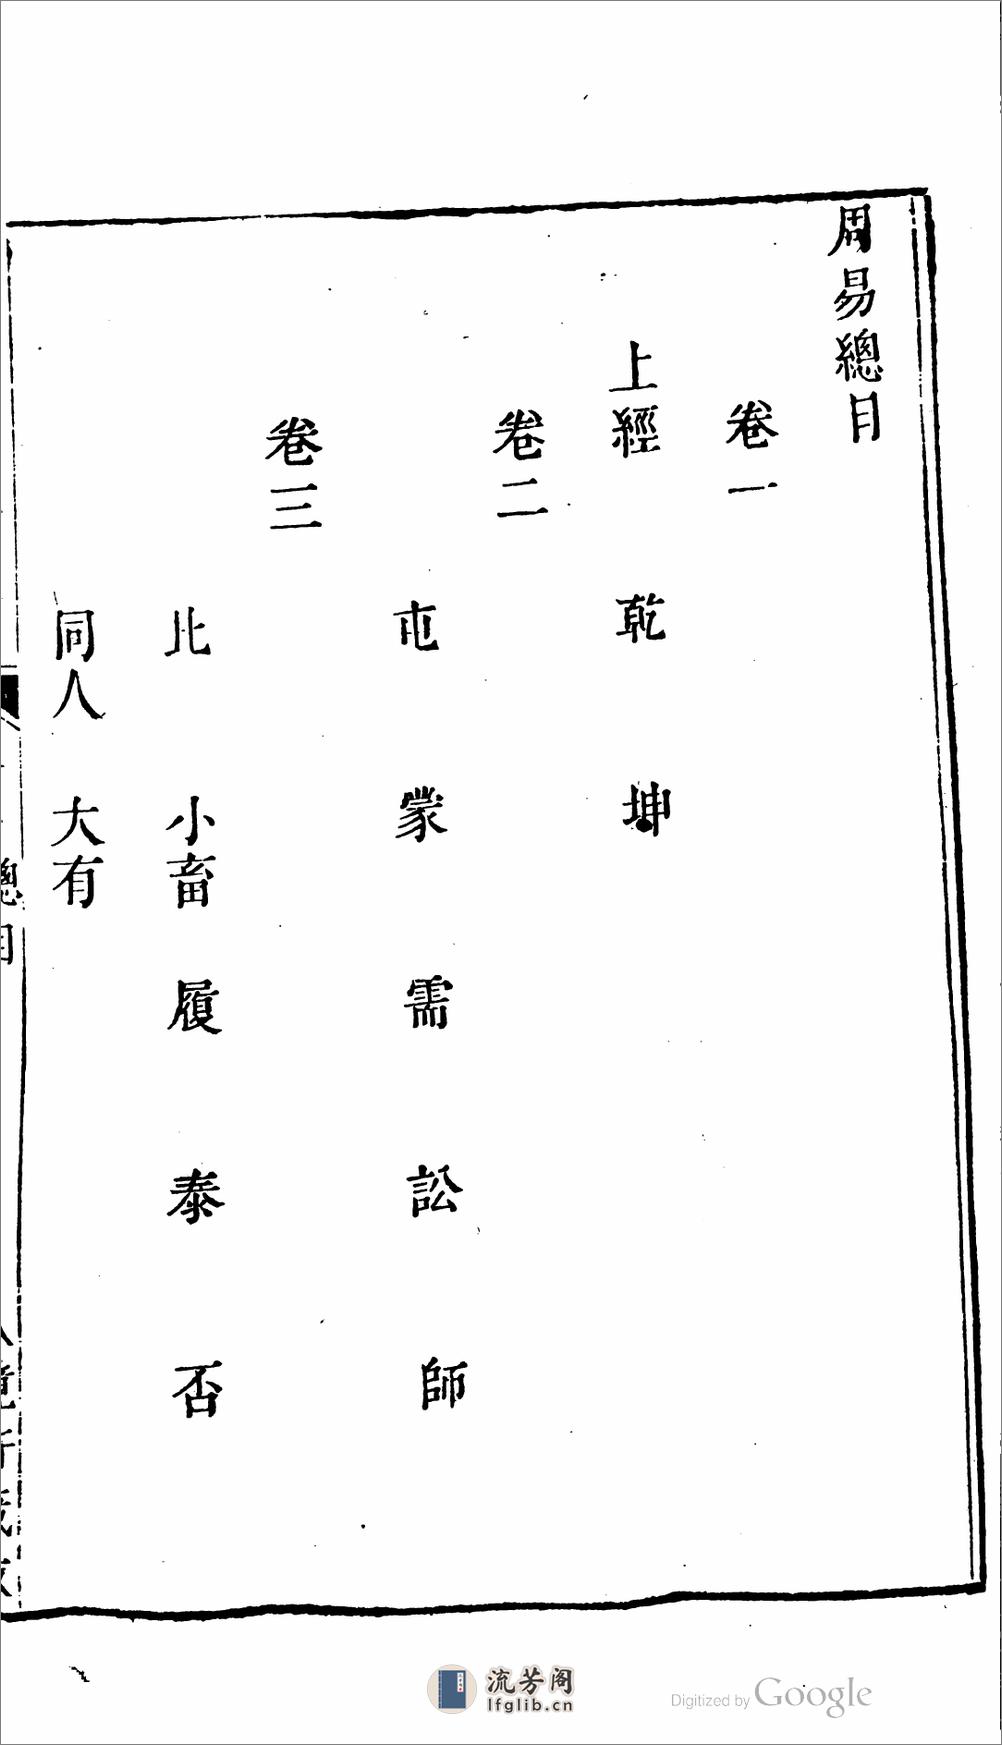 周易總目
卷一
上經 乾 坤
卷二
屯 蒙 需 訟 師
卷三
比 小畜 履 泰 否
同人 大有
總目
流芳阁
lfglib.cn
Digitized by Google